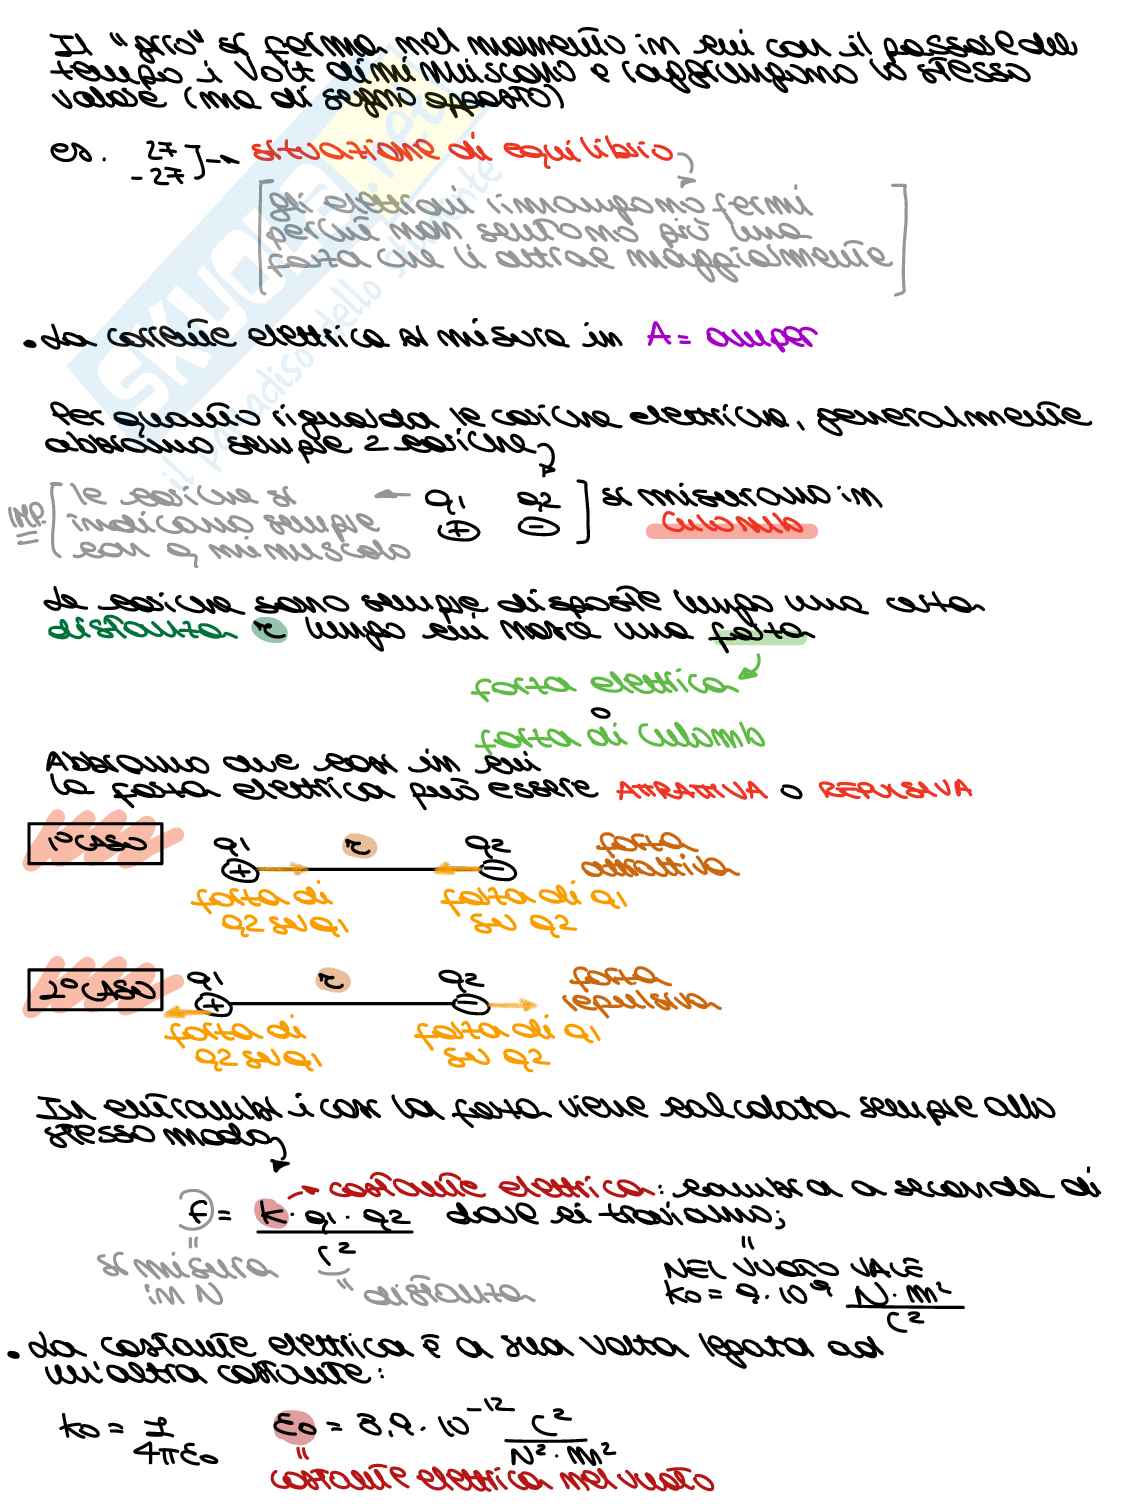 Il "giro" si ferma nel momento in cui con il passare del
tempo i Volt diminuiscono e raggiungono lo stesso
valore (ma di segno opposto)
es. 27
-27 → situazione di equilibrio
gli elettroni rimangono fermi
perché non sentono più una
forza che li attrae maggiormente
SKUOLA.net
il paradiso dello studente
• La corrente elettrica si misura in A = amper
Per quanto riguarda le cariche elettriche, generalmente
abbiamo sempre 2 cariche
IMP. le cariche si ← q1 q2 si misurano in
indicano sempre + - Culomb
con q minuscolo
Le cariche sono sempre disposte lungo una certa
distanza r lungo cui nasce una forza
forza elettrica
o
forza di Culomb
Abbiamo due casi in cui
la forza elettrica può essere ATTRATTIVA o REPULSIVA
1° CASO q1 r q2 forza
+ - attrattiva
forza di forza di q1
q2 su q1 su q2
2° CASO q1 r q2 forza
+ - repulsiva
forza di forza di q1
q2 su q1 su q2
In entrambi i casi la forza viene calcolata sempre allo
stesso modo
→ costante elettrica: cambia a seconda di
f = k · q1 · q2 dove ci troviamo;
r²
si misura
in N
" distanza
NEL VUOTO VALE
k0 = 9 · 10⁹ N · m²
C²
• La costante elettrica è a sua volta legata ad
un'altra costante:
k0 = 1
4πε0
ε0 = 8,9 · 10⁻¹² C²
N² · m²
costante elettrica nel vuoto